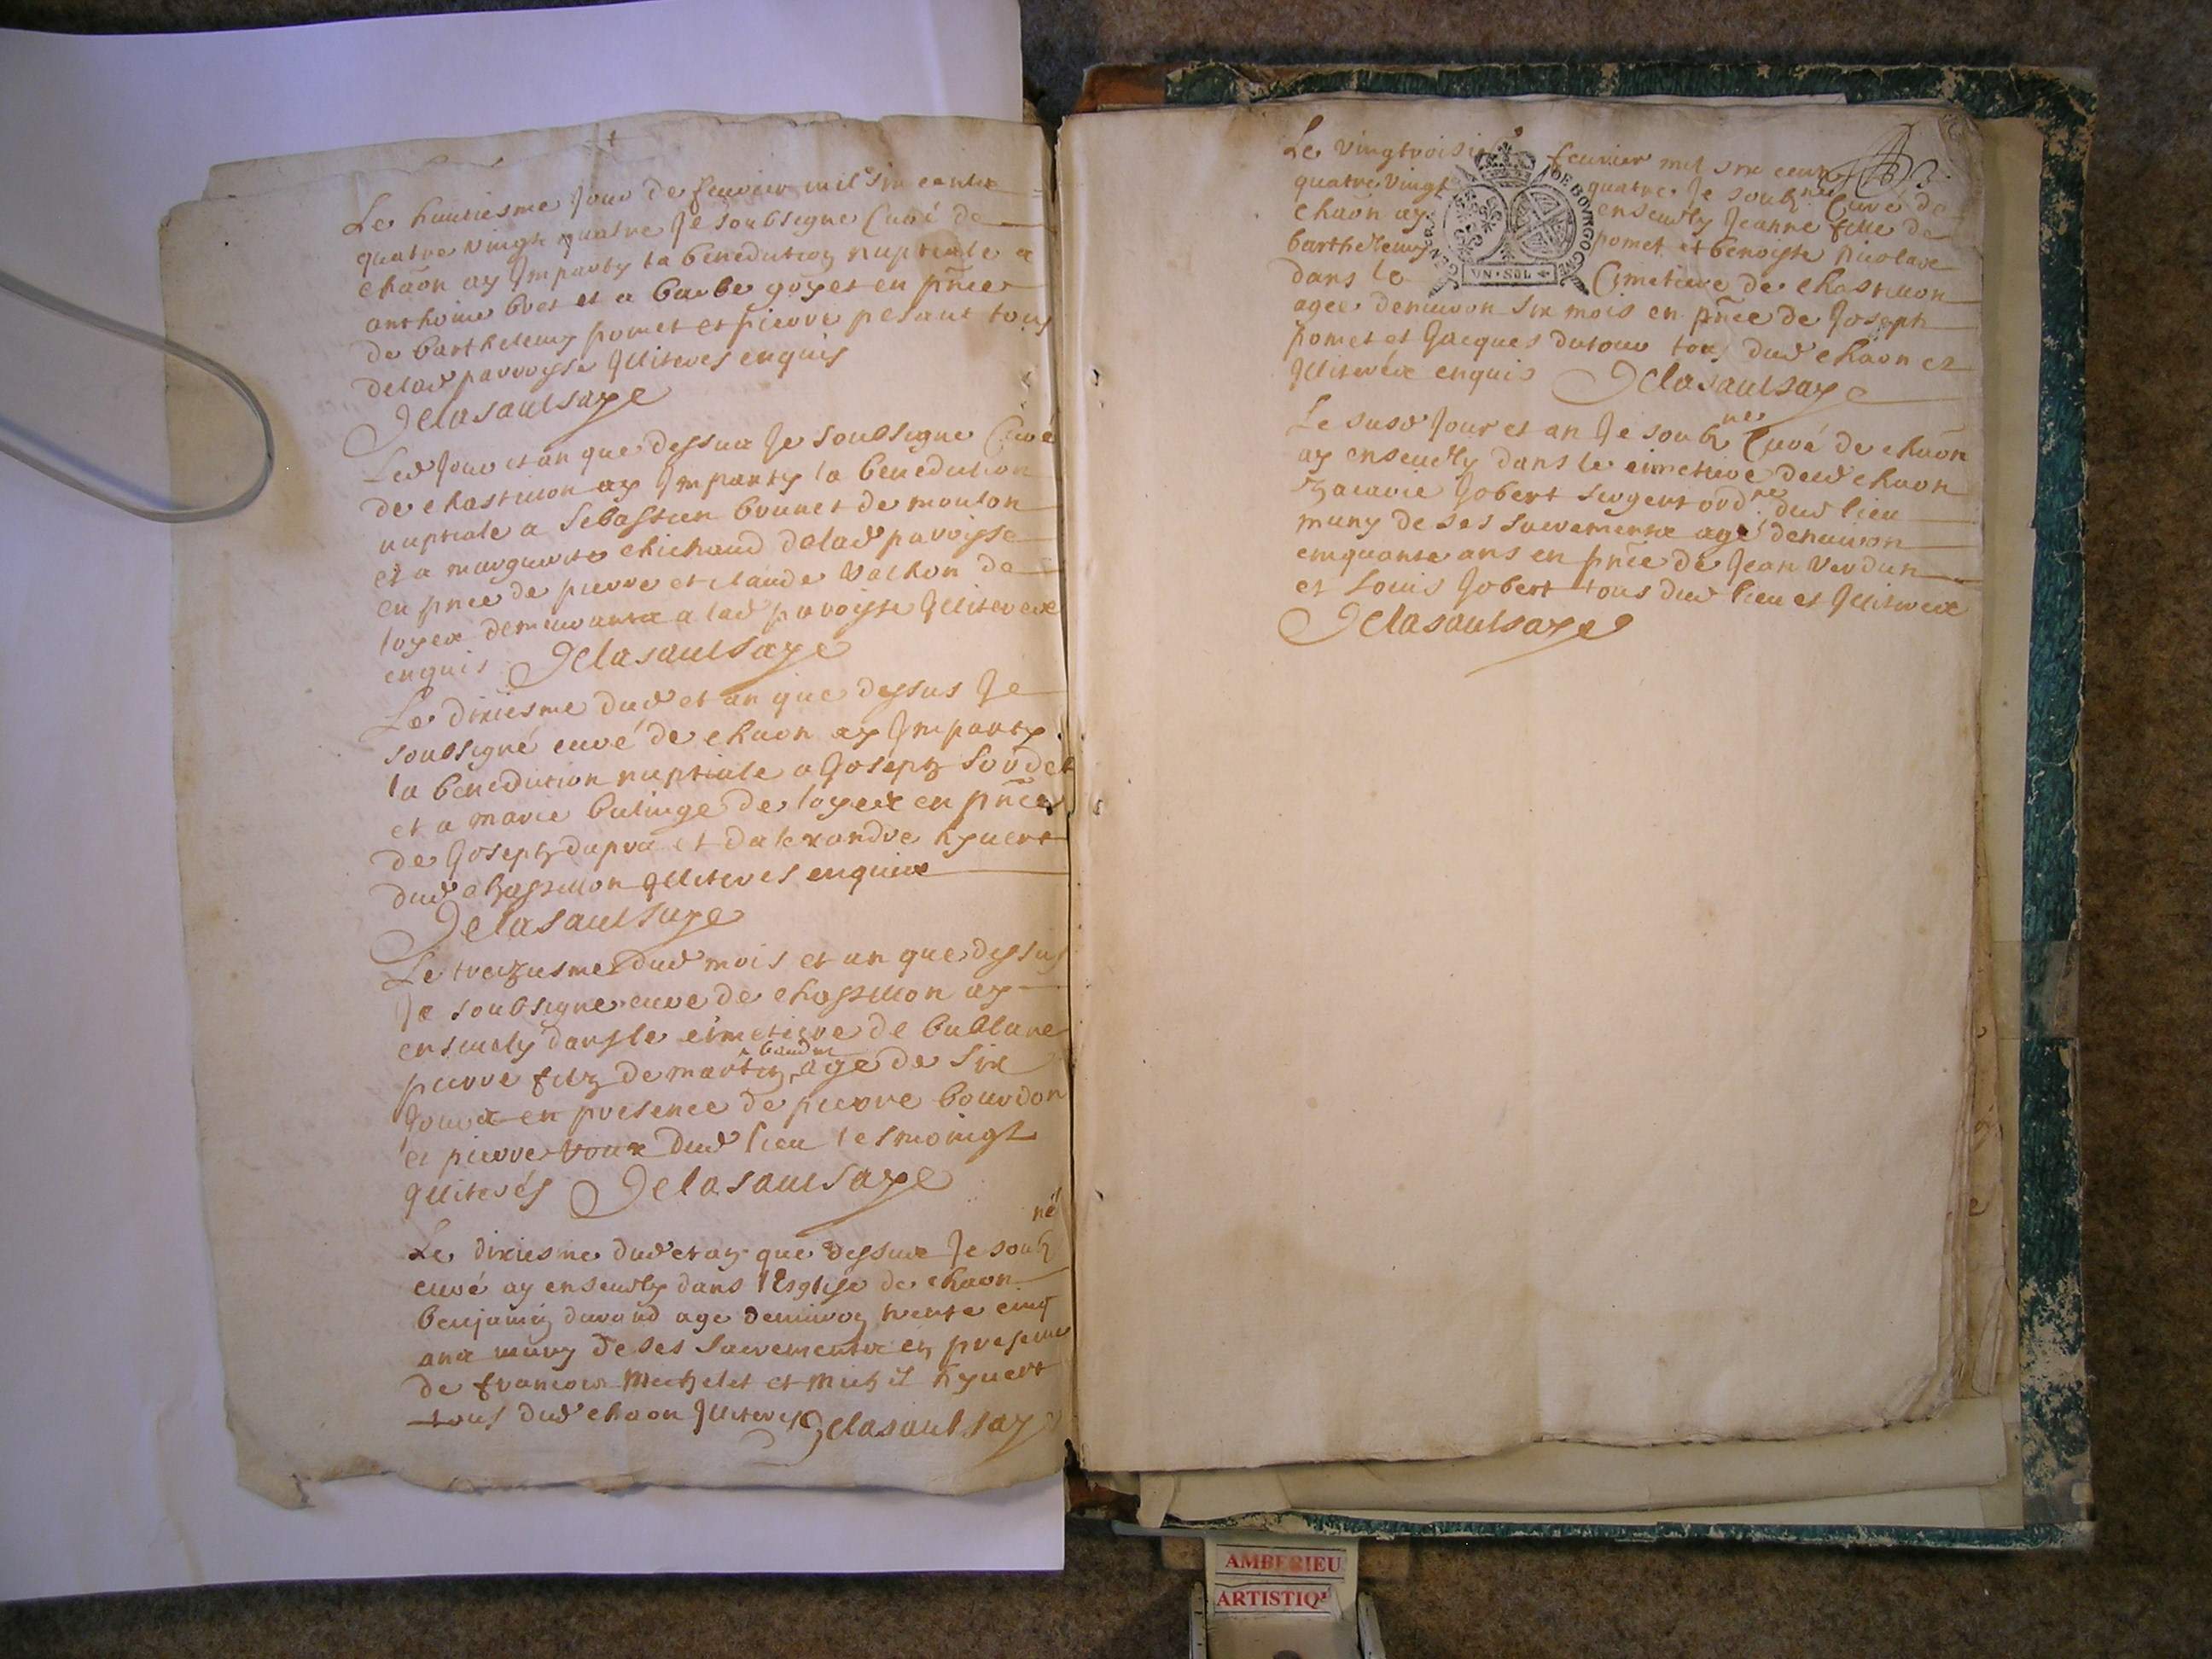 Le huitiesme Jour de feuvrier mil six centz
quatre vingt quatre Je soubsigne Curé de
chãon ay Imparty la benediction nuptiale a
anthoine bret et a barbe goyet en pñce
de barthelemy pomet et pierre pesant tous
delad parroysse Illiteres enquis
Delasaulsaye
Led Jour et an que dessus Je soubsigne Curé
de chastillon ay Imparty la benediction
nuptiale a Sebastien brunet de moulon
et a marguerite chichaud delad paroysse
en pnce de pierre et claude Vachon de
loyex demeurantz a lad paroysse Illiterez
enquis Delasaulsaye
Le dixiesme dud et an que dessus Je
soubsigné curé de chaon ay Imparty
la benediction nuptiale a Joseph
et a marie de loyex en pñce
de Joseph dupra et dalexandre hyvert
dud chastillon Illiteres enquis
Delasaulsaye
Le treiziesme dud mois et an que dessus
Je soubsigne cure de chastillon ay
ensevely dans le cimetiere de bublane
pierre filz de martin baudin age de six
Jours en presence de pierre bourdon
et pierre roux dud lieu tesmoingz
Illiterés Delasaulsaye
Le dixiesme dud et an que dessus Je soubzné
curé ay ensevely dans l'Esglise de chaon
benjamin durand age denviron trente cinq
ans muny de ses sacrementz en presence
de francois Michelet et Michel hyvert
tous dud chaon Illiteres Delasaulsaye
Le vingtroisie feuvrier mil six cent
quatre vingt quatre Je soubzné Curé de
chãon ay ensevely Jeanne fille de
barthelemy pomet et benoiste
dans le Cimetiere de chastillon
agee denviron six mois en pñce de Joseph
pomet et Jacques dutour tous dud chãon et
Illiteréz enquis Delasaulsaye
GEN DE BOVRGOGNE
VN·SOL
Le susd Jour et an Je soubzné Curé de chãon
ay ensevely dans le cimetiere dud chaon
zacarie Jobert sergent ordre dud lieu
muny de ses sacrementz agé denviron
cinquante ans en pñce de Jean Verdun
et Louis Jobert tous dud lieu et Illiterez
Delasaulsaye
AMBERIEU
ARTISTIQ